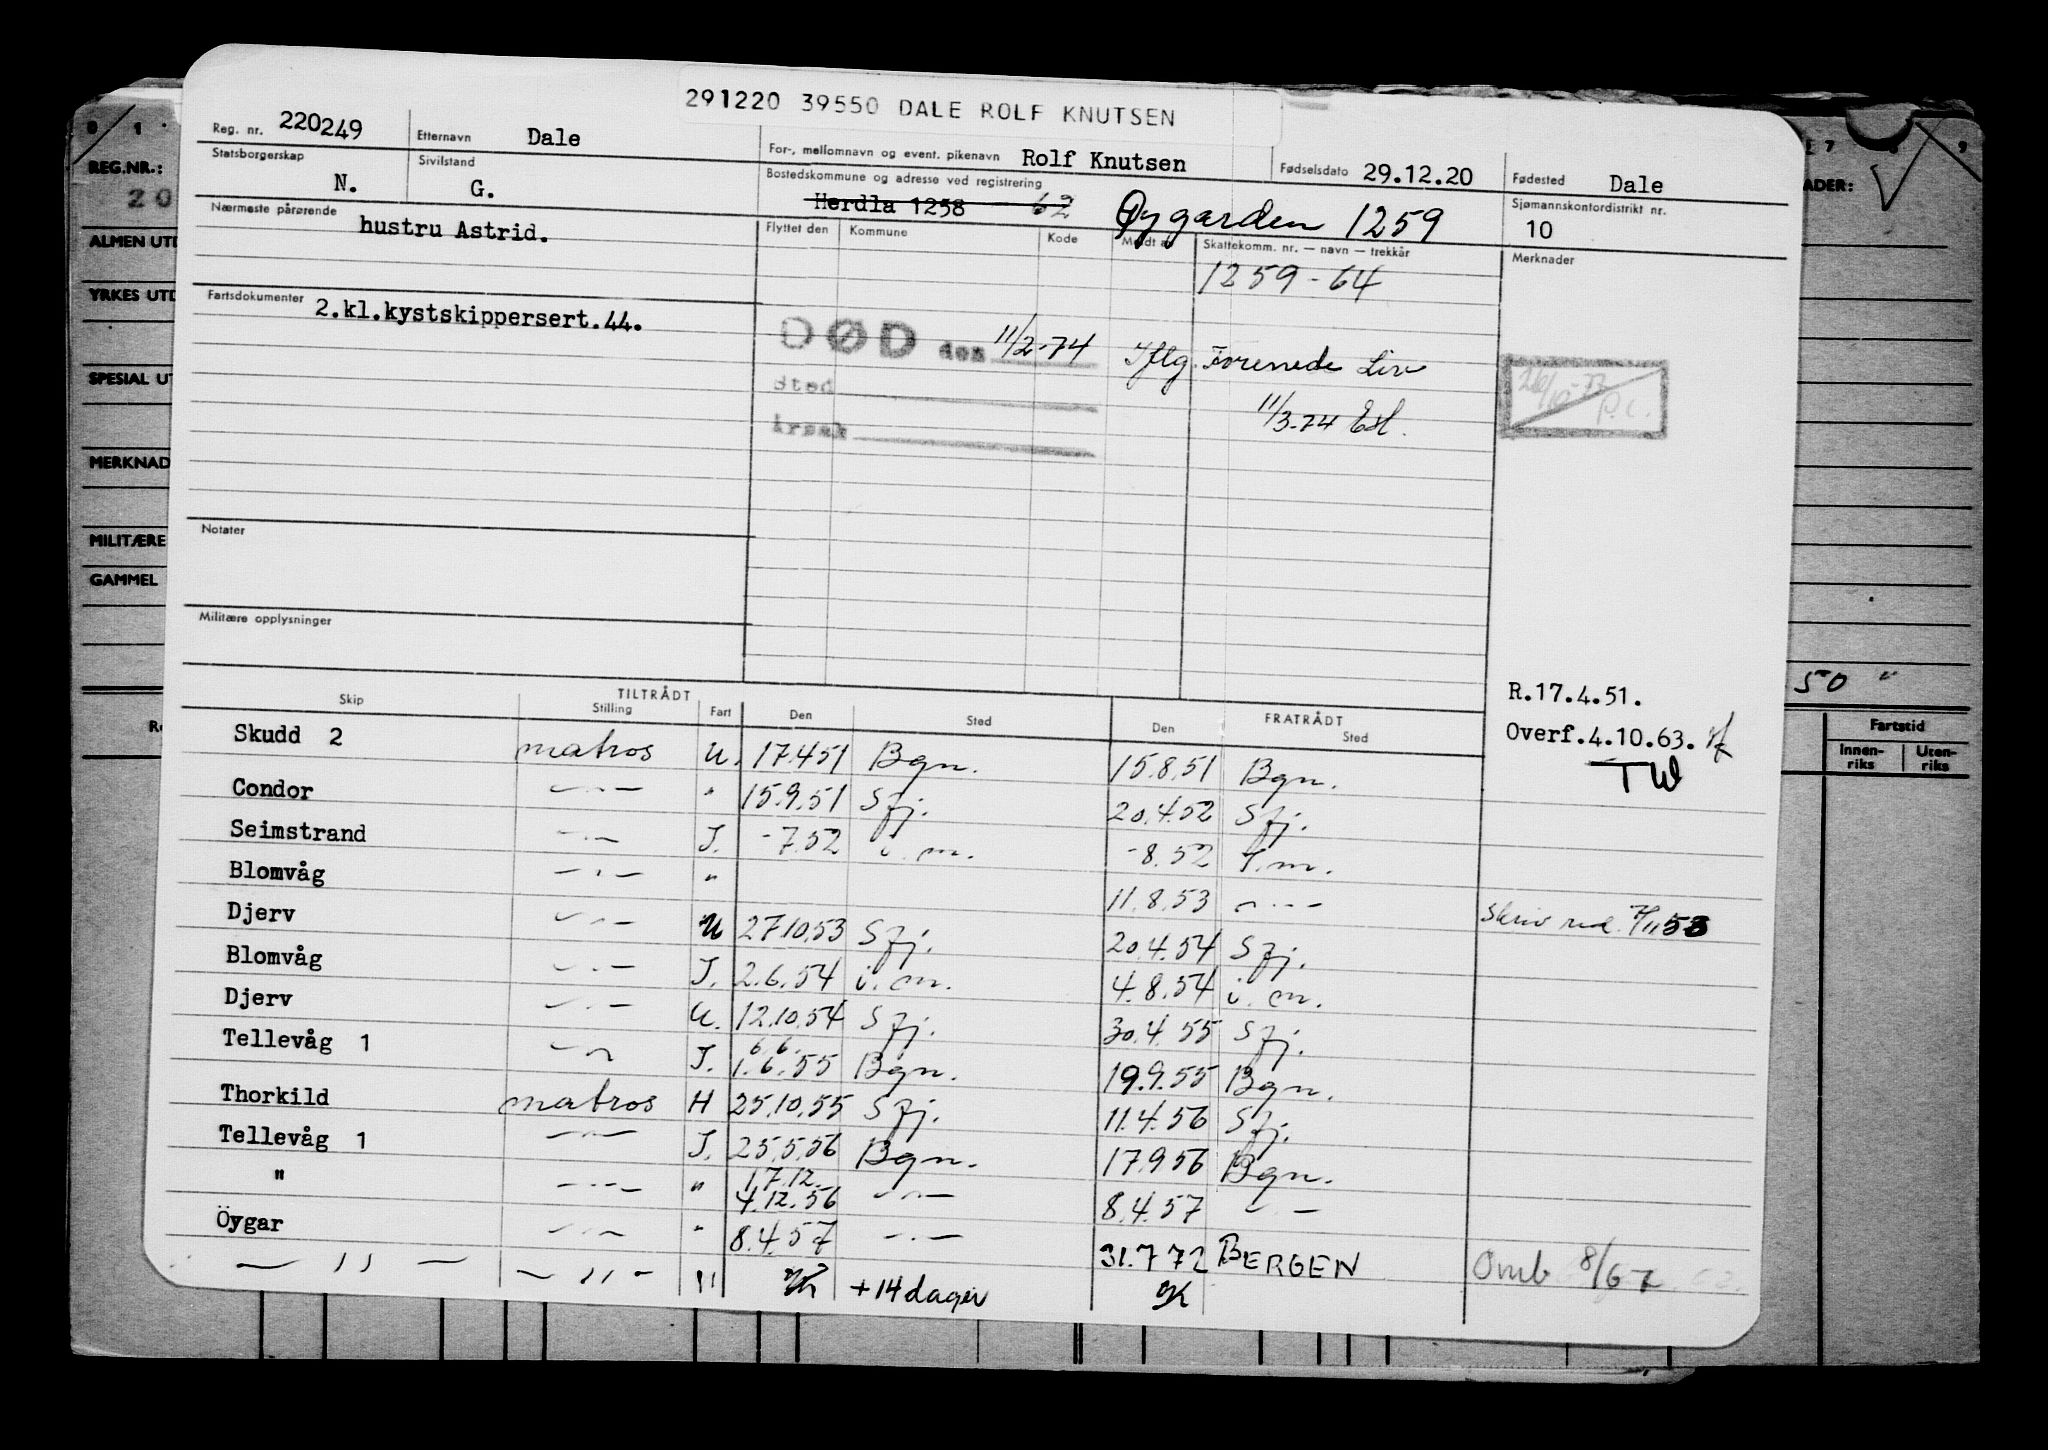 291220 39550 DALE ROLF KNUTSEN
Reg. nr. 220249 Etternavn Dale For-, mellomnavn og event. pikenavn Rolf Knutsen Fødselsdato 29.12.20 Fødested Dale
Statsborgerskap N. Sivilstand G. Bostedskommune og adresse ved registrering Herdla 1258 62 Øygarden 1259 Sjømannskontordistrikt nr. 10
Nærmeste pårørende hustru Astrid. Flyttet den Kommune Kode Meldt Skattekomm. nr. — navn — trekkår Merknader
1259-64
Fartsdokumenter 2.kl.kystskippersert.44.
DØD den 11/2-74 Iflg. Forenede Liv
Sted
11/3-74
Årsak
Notater
Militære opplysninger
R.17.4.51.
Overf.4.10.63.
TW
TILTRÅDT FRATRÅDT
Skip Stilling Fart Den Sted Den Sted
Skudd 2 matros U. 17.4.51 Bgn. 15.8.51 Bgn.
Condor —"— " 15.9.51 Sfj. 20.4.52 Sfj.
Seimstrand —"— I. -7.52 i.m. -8.52 i.m.
Blomvåg —"— " 11.8.53 —"—
Djerv —"— U 27.10.53 Sfj. 20.4.54 Sfj.
Blomvåg —"— I. 2.6.54 i.m. 4.8.54 i.m.
Djerv —"— U. 12.10.54 Sfj. 30.4.55 Sfj.
6.6.
Tellevåg 1 —"— I. 1.6.55 Bgn. 19.9.55 Bgn.
Thorkild matros H 25.10.55 Sfj. 11.4.56 Sfj.
Tellevåg 1 —"— I. 25.5.56 Bgn. 17.9.56 Bgn.
17.12.
" —"— " 4.12.56 —"— 8.4.57 —"—
Öygar —"— " 8.4.57 —"— 31.7.72 BERGEN
—"— —"— " +14 dager
REG.NR.:
20
ALMEN UTD
YRKES UTD
SPECIAL UT
MERKNAD
MILITÆRE
GAMMEL
50 "
Fartstid
Innen-riks Uten-riks